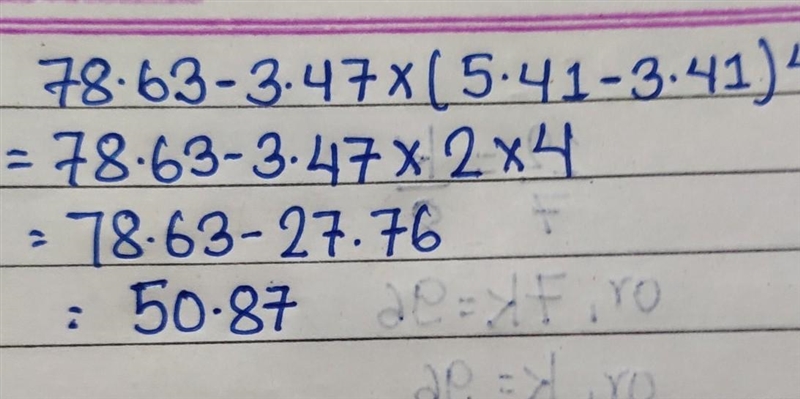 78.63-3.47×(5.41-3.41)⁴
= 78.63-3.47×2×4
= 78.63-27.76
= 50.87